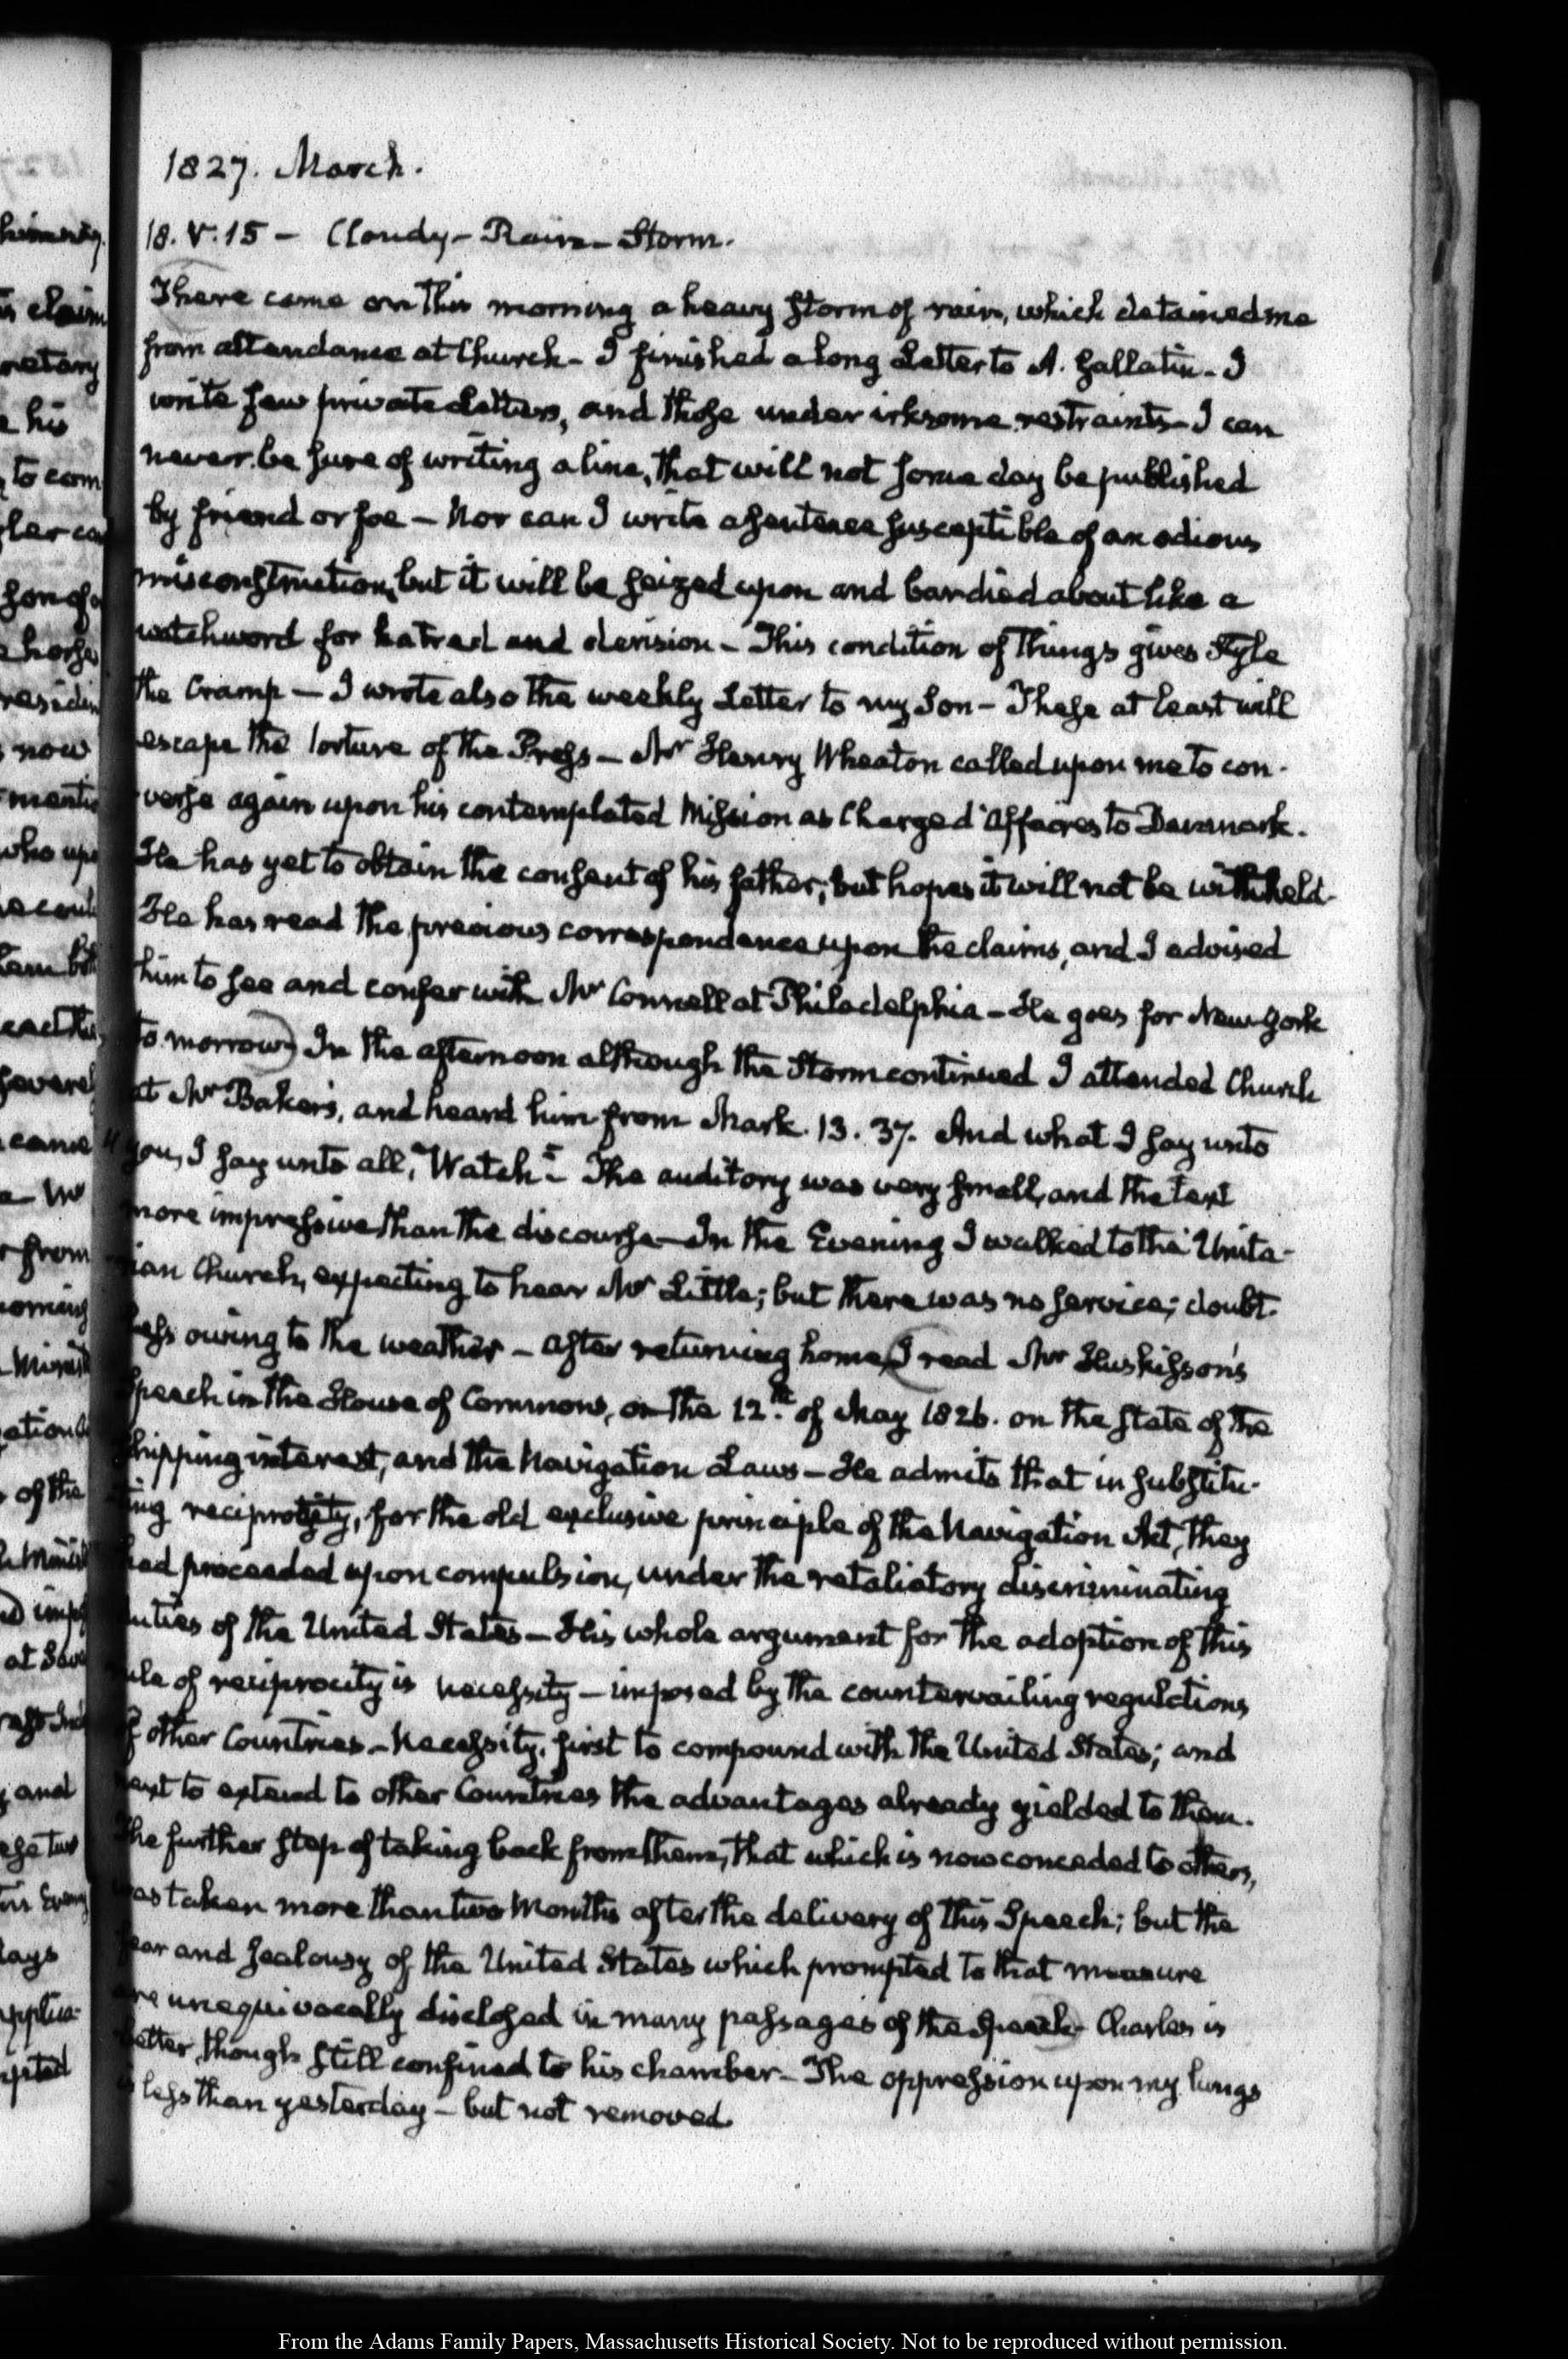 1827. March.
18. V. 15 – Cloudy – Rain – Storm.
There came on this morning a heavy storm of rain, which detained me
from attendance at Church – I finished a long Letter to A. Gallatin – I
write few private Letters, and those under irksome restraints – I can
never be sure of writing a line, that will not some day be published
by friend or foe – Nor can I write a sentence susceptible of an odious
misconstruction, but it will be seized upon and bandied about like a
watchword for hatred and derision – This condition of things gives style
the Cramp – I wrote also the weekly Letter to my Son – These at least will
escape the torture of the Press – Mr Henry Wheaton called upon me to con-
verse again upon his contemplated Mission as Charge d'Affaires to Denmark.
He has yet to obtain the consent of his father; but hopes it will not be withheld.
He has read the previous correspondence upon the claims, and I advised
him to see and confer with Mr Connell at Philadelphia – He goes for New-York
to morrow) In the afternoon although the Storm continued I attended Church
at Mr Baker's, and heard him from Mark. 13. 37. And what I say unto
"you, I say unto all, "Watch" – The auditory was very small, and the text
more impressive than the discourse – In the Evening I walked to the Unita-
rian Church, expecting to hear Mr Little; but there was no service; doubt-
less owing to the weather – after returning home, (I read Mr Huskisson's
Speech in the House of Commons, on the 12th. of May 1826. on the state of the
Shipping interest, and the Navigation Laws – He admits that in substitu-
ting reciprocity, for the old exclusive principle of the Navigation Act, they
had proceeded upon compulsion, under the retaliatory discriminating
duties of the United States – His whole argument for the adoption of this
rule of reciprocity is necessity – imposed by the countervailing regulations
of other Countries – Necessity, first to compound with the United States; and
next to extend to other Countries the advantages already yielded to them.
The further step of taking back from them, that which is now conceded to others,
was taken more than two Months after the delivery of this Speech; but the
fear and jealousy of the United States which prompted to that measure
are unequivocally disclosed in many passages of the Speech) Charles is
better, though still confined to his chamber – The oppression upon my lungs
is less than yesterday – but not removed
From the Adams Family Papers, Massachusetts Historical Society. Not to be reproduced without permission.